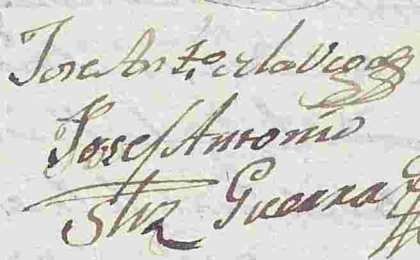 Jose Anto de la Vega
Josef Antonio
Stiz Guerra